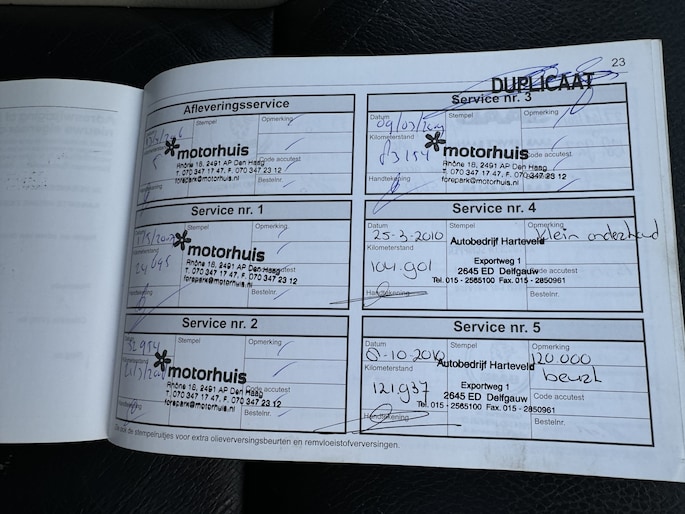 23
DUPLICAAT
Afleveringsservice
Datum
Stempel
Opmerking
motorhuis
Rhône 16, 2491 AP Den Haag
T. 070 347 17 47, F. 070 347 23 12
forepark@motorhuis.nl
Handtekening
Bestelnr.
Service nr. 1
Stempel
Opmerking
motorhuis
Rhône 16, 2491 AP Den Haag
T. 070 347 17 47, F. 070 347 23 12
forepark@motorhuis.nl
Handtekening
Bestelnr.
Service nr. 2
Stempel
Opmerking
32 954
motorhuis
Code accutest
Rhône 16, 2491 AP Den Haag
T. 070 347 17 47, F. 070 347 23 12
forepark@motorhuis.nl
Bestelnr.
Service nr. 3
Datum
Stempel
Opmerking
Kilometerstand
83154
motorhuis
Code accutest
Rhône 16, 2491 AP Den Haag
T. 070 347 17 47, F. 070 347 23 12
forepark@motorhuis.nl
Handtekening
Bestelnr.
Service nr. 4
Datum
Stempel
Opmerking
25-3-2010
Klein onderhoud
Autobedrijf Harteveld
Kilometerstand
104.901
Exportweg 1
2645 ED Delfgauw
Code accutest
Tel. 015 - 2565100 Fax. 015 - 2850961
Handtekening
Bestelnr.
Service nr. 5
Datum
Stempel
Opmerking
-10-2010
120.000
Autobedrijf Harteveld
beurt
Kilometerstand
121.937
Exportweg 1
2645 ED Delfgauw
Code accutest
Tel. 015 - 2565100 Fax. 015 - 2850961
Handtekening
Bestelnr.
Zie ook de stempelruitjes voor extra olieverversingsbeurten en remvloeistofverversingen.